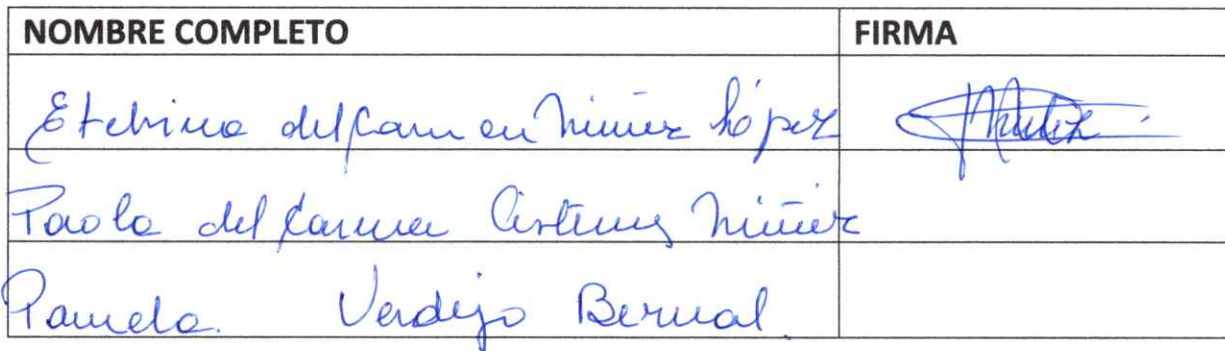 NOMBRE COMPLETO FIRMA
Etelvina del Carmen Núñez López
Paola del Carmen Núñez
Pamela Verdejo Bernal